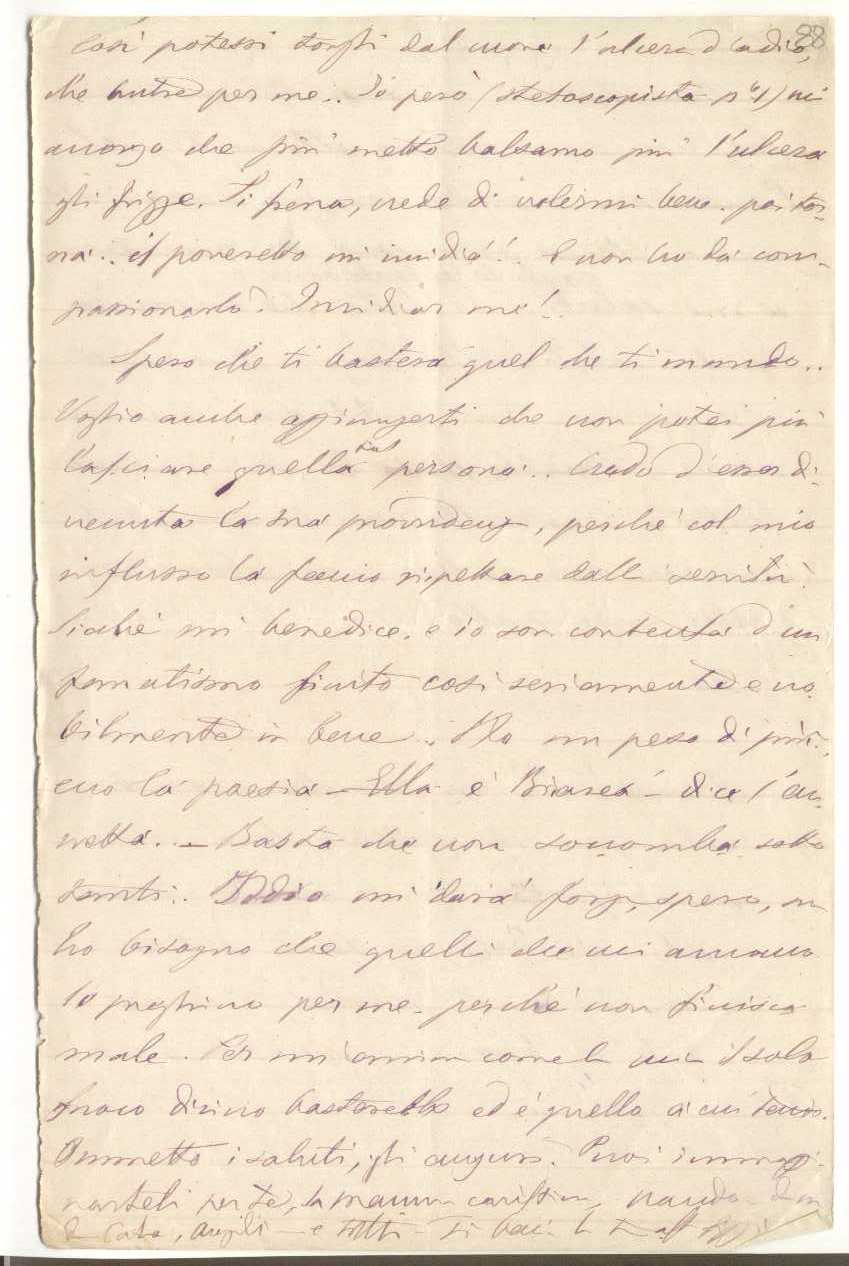 88
Così potessi torgli dal cuore l'ulcera d'odio,
che nutre per me.. Io però (stetoscopista n°1) mi
accorgo che più metto balsamo più l'ulcera
gli frizze. Si frena, vede di volermi bene. poi tor-
na.. il poveretto mi invidia! E non ho da com-
passionarlo? Invidiar me!
Spero che ti basterà quel che ti mando..
Voglio anche aggiungerti che non potei più
lasciare quella tal persona.. Credo d'esser di-
venuta la sua provvidenza, perché col mio
influsso la faccio rispettare dalla servitù.
Sicché mi benedice. e io son contenta d'un
fanatismo finito così seriamente e no-
bilmente in bene.. Ho un peso di più:
ecco la poesia – Ella è
– dice l'
. – Basta che non soccomba sotto
tanti.. Iddio mi darà forza, spero, ma
ho bisogno che quelli che mi amano
lo preghino per me. perché non finisca
male. Per un'anima come la mia il solo
fuoco divino basterebbe ed è quello a cui
Ommetto i saluti, gli auguri. Puoi immagi-
narteli per te, la mamma carissima,
, e tutti – Ti